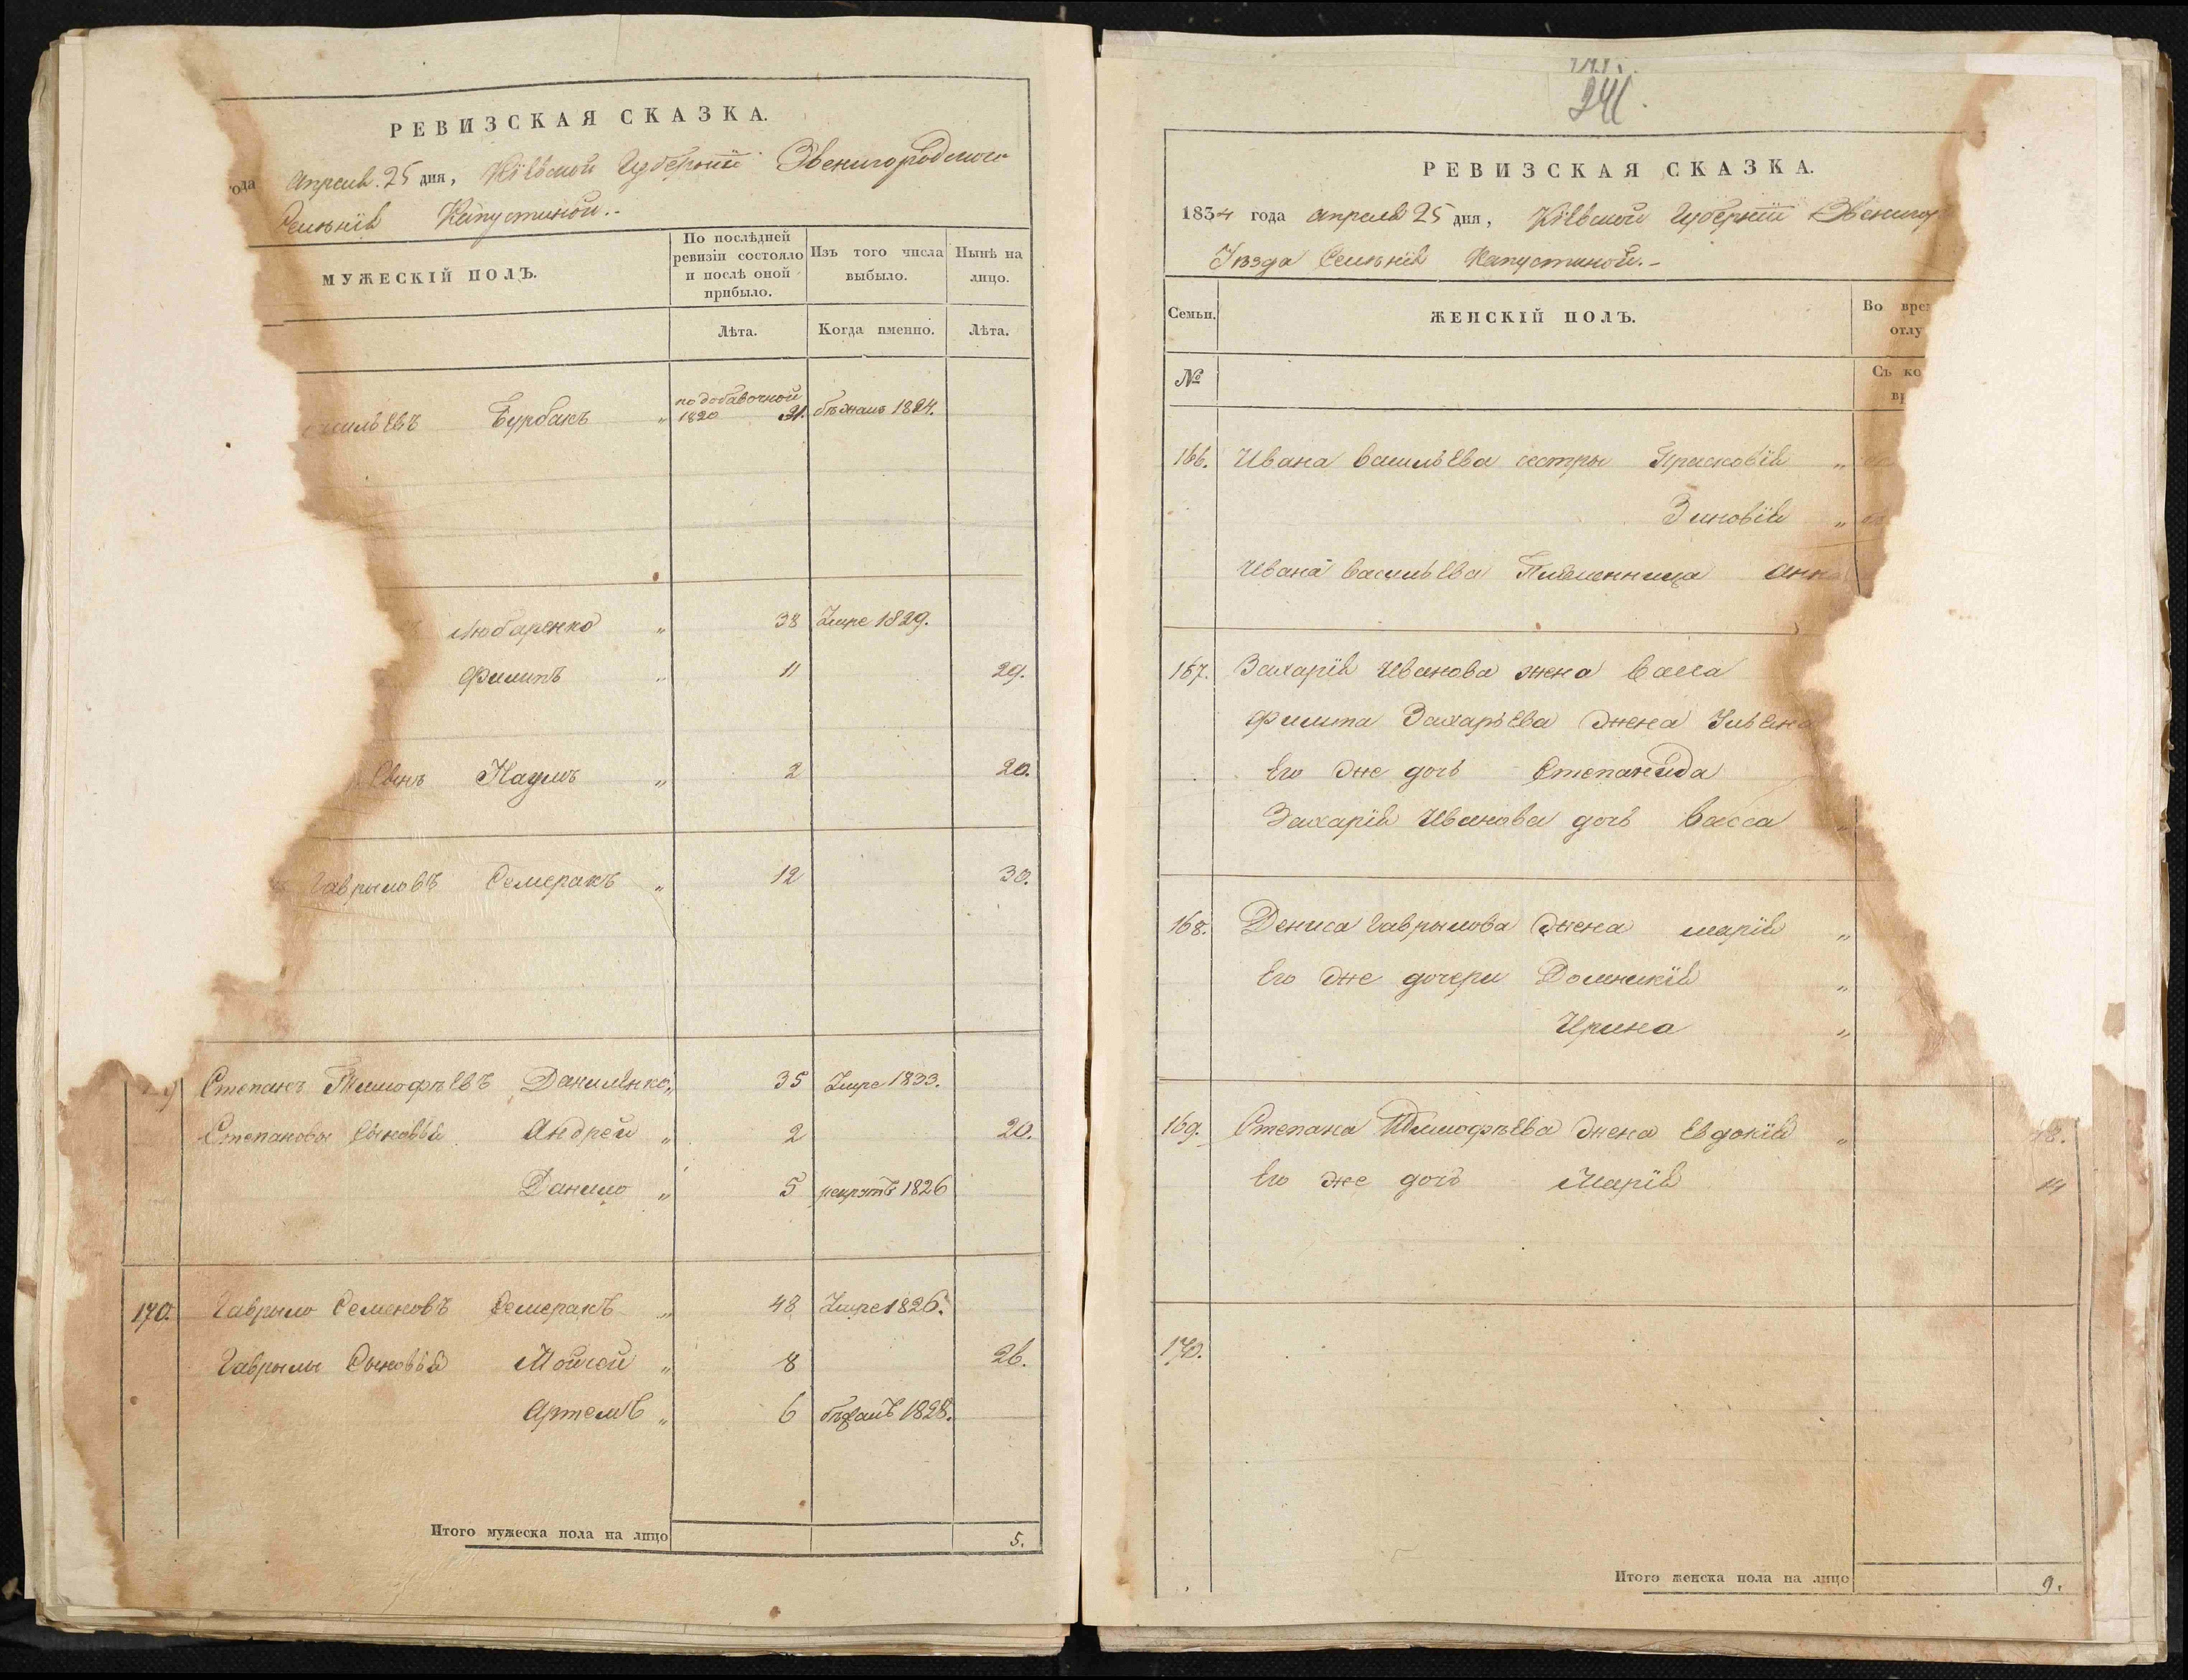 РЕВИЗСКАЯ СКАЗКА.
ода апреля 25 дня, Кіевской Губерніи Звенигородского
Селенія Капустиной..
МУЖЕСКІЙ ПОЛЪ.
По послѣдней ревизіи состояло и послѣ оной прибыло.
Изъ того числа выбыло.
Нынѣ на лицо.
Лѣта.
Когда именно.
Лѣта.
сильевъ Бурбакъ „ по добавочной 1820 21. бѣжалъ 1824.
Любаренко „ 38 Умре 1829.
Филипъ „ 11 29.
Наумъ „ 2 20.
Гаврыловъ Семеракъ „ 12 30.
Степанъ Тимофѣевъ Даниленко „ 35 Умре 1833.
Степановы сыновья Андрей „ 2 20.
Данило „ 5 рекрутъ 1826
170. Гаврыло Семеновъ Семеракъ „ 48 Умре 1826.
Гаврылы Сыновья Мойсей „ 8 26.
Артемъ „ 6 бѣжалъ 1828.
Итого мужеска пола на лицо 5.
241.
РЕВИЗСКАЯ СКАЗКА.
1834 года апреля 25 дня, Кіевской Губерніи Звениго
Уѣзда Селенія Капустиной.–
Семьи.
ЖЕНСКІЙ ПОЛЪ.
Во врем
отлу
№
Съ ко
вр
166. Ивана Васильева сестры Прасковія „
Зиновія „
Ивана Васильева Племенница Анна
167. Захарія Иванова жена Васса
Филипа Захарьева жена Ульяна
Его же дочь Степанида
Захарія Иванова дочь Васса „
168. Дениса Гаврылова жена Марія „
Его же дочери Домникія „
Ирина „
169. Степана Тимофѣева жена Евдокія „ 48.
Его же дочь Марія 14
170.
Итого женска пола на лицо 9.